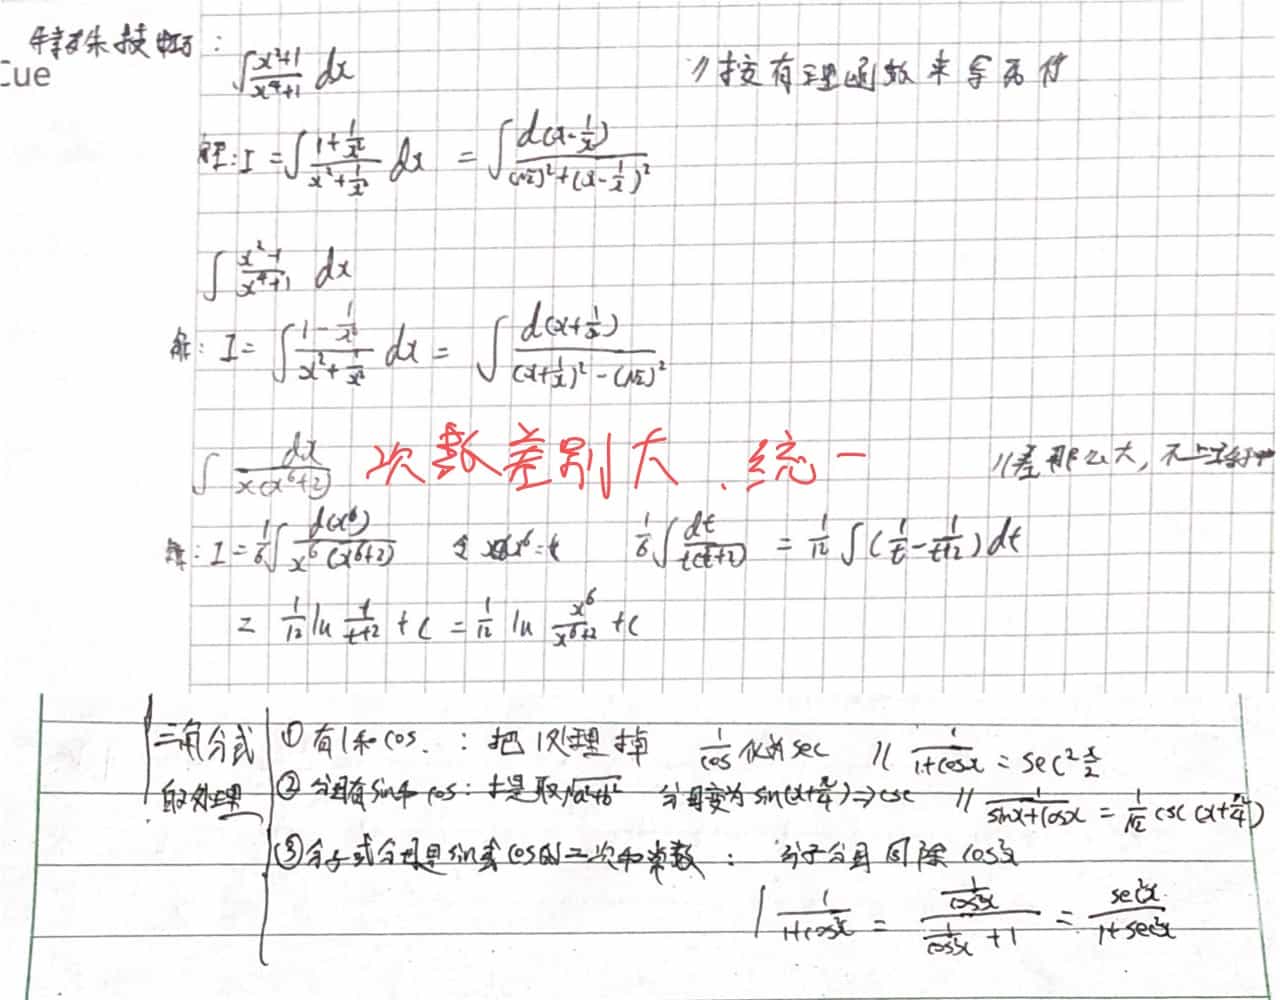 特殊技巧：
Cue
∫ (x²+1)/(x⁴+1) dx //按有理函数来拿
解：I = ∫ (1+1/x²)/(x²+1/x²) dx = ∫ d(x-1/x)/((√2)²+(x-1/x)²)
∫ (x²-1)/(x⁴+1) dx
解：I = ∫ (1-1/x²)/(x²+1/x²) dx = ∫ d(x+1/x)/((x+1/x)²-(√2)²)
∫ dx/(x(x⁶+2)) 次数差别大，统一 //差那么大，不
解：I = 1/6 ∫ d(x⁶)/(x⁶(x⁶+2)) 令 x⁶=t 1/6 ∫ dt/(t(t+2)) = 1/12 ∫ (1/t - 1/(t+2)) dt
= 1/12 ln t/(t+2) + C = 1/12 ln x⁶/(x⁶+2) + C
三角分式的处理
① 有1和cos：把1处理掉 1/cos 化为sec // 1/(1+cosx) = sec² x/2
② 分母有sin和cos：提取√(a²+b²) 分母变为sin(x+π/4)⇒csc // 1/(sinx+cosx) = 1/√2 csc(x+π/4)
③ 分子或分母是sin或cos的二次和常数：分子分母同除cos²x
1/(1+cos²x) = (1/cos²x)/(1/cos²x + 1) = sec²x/(1+sec²x)